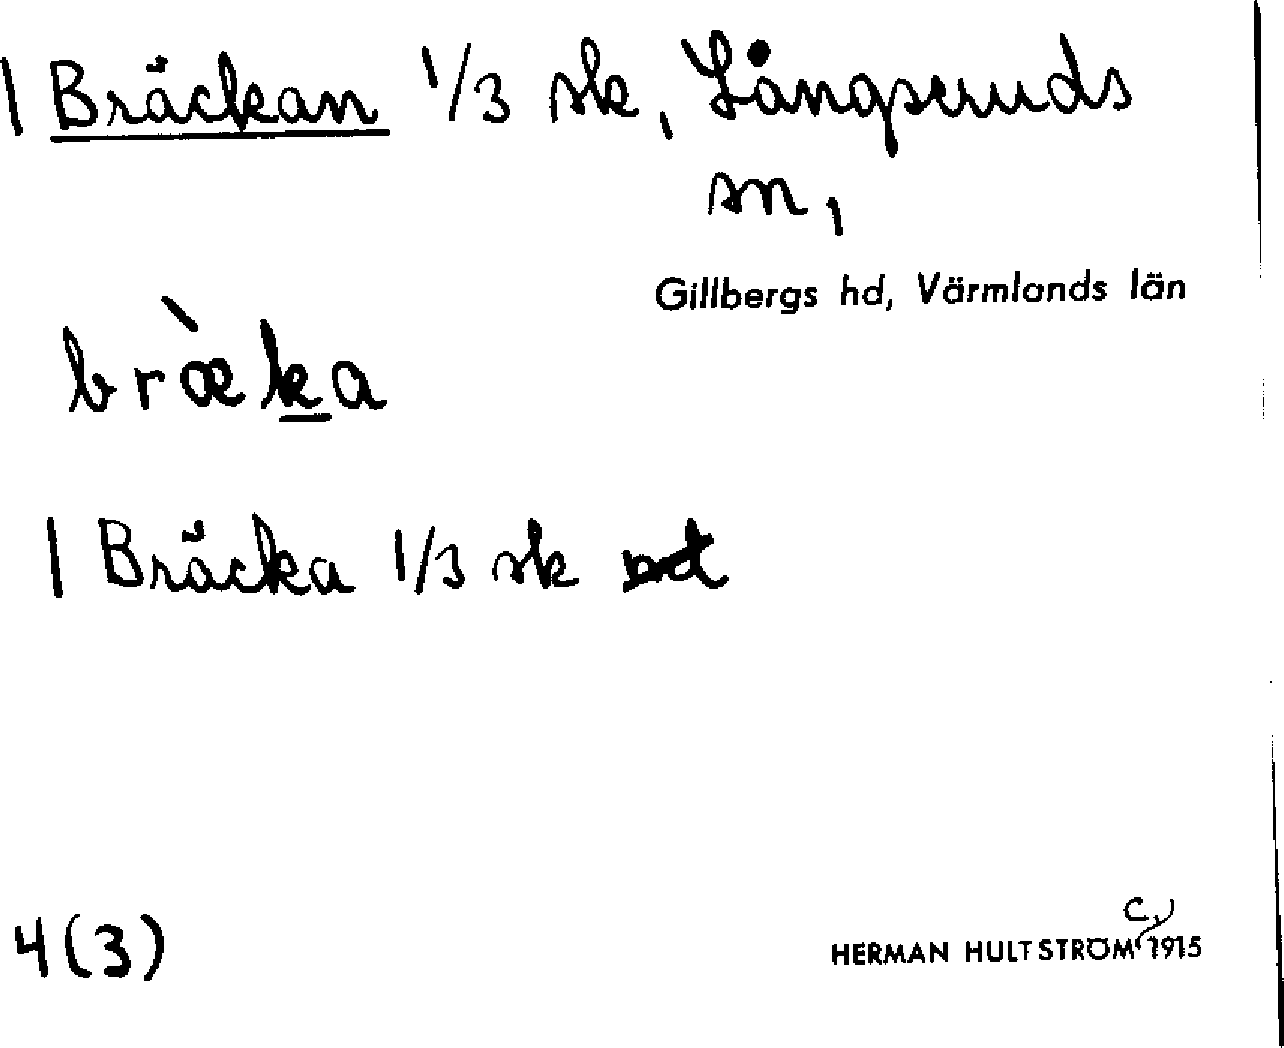 | Bräckan 1/3 sk, Långseruds
sn,
Gillbergs hd, Värmlands län
bræ̀ka
| Bräcka 1/3 sk
4(3)
HERMAN HULTSTRÖM c. 1915